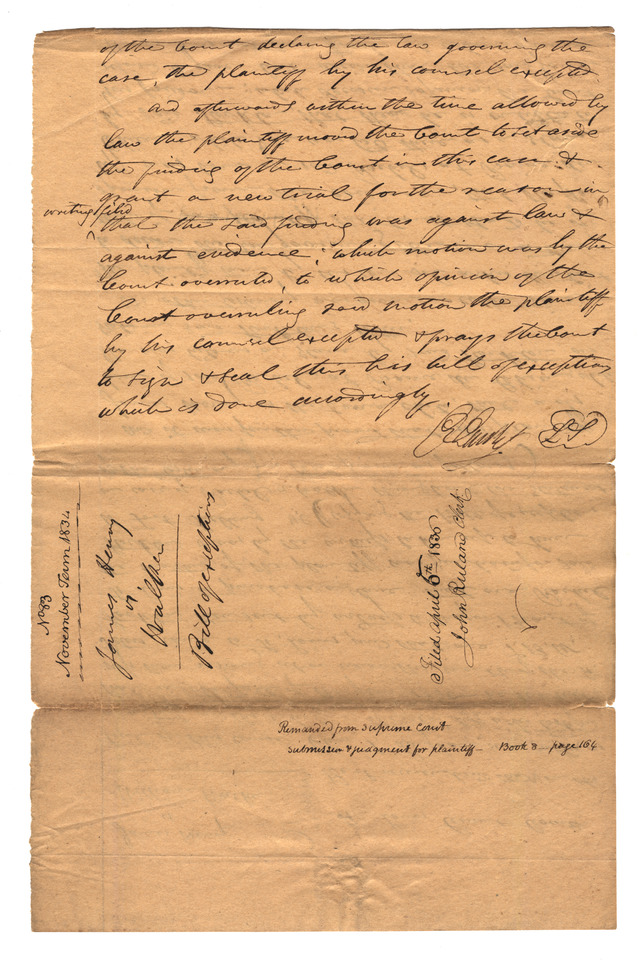 of the Court declaring the law governing the
case, the plaintiff by his counsel excepted
and afterwards within the time allowed by
law the plaintiff moved the Court to set aside
the finding of the Court in this case &
grant a new trial for the reason in
writing filed
that the said finding was against law &
against evidence; which motion was by the
Court overruled, to which opinion of the
Court overruling said motion the plaintiff
by his counsel excepted & prays the Court
to sign & seal this his bill of exceptions
which is done accordingly.
No 83
November Term 1834
James Henry
vs
Walker
Bill of exceptions
Filed April 6th 1835
John Ruland Clerk
Remanded from Supreme Court
submission & judgment for plaintiff – Book 8 – page 164